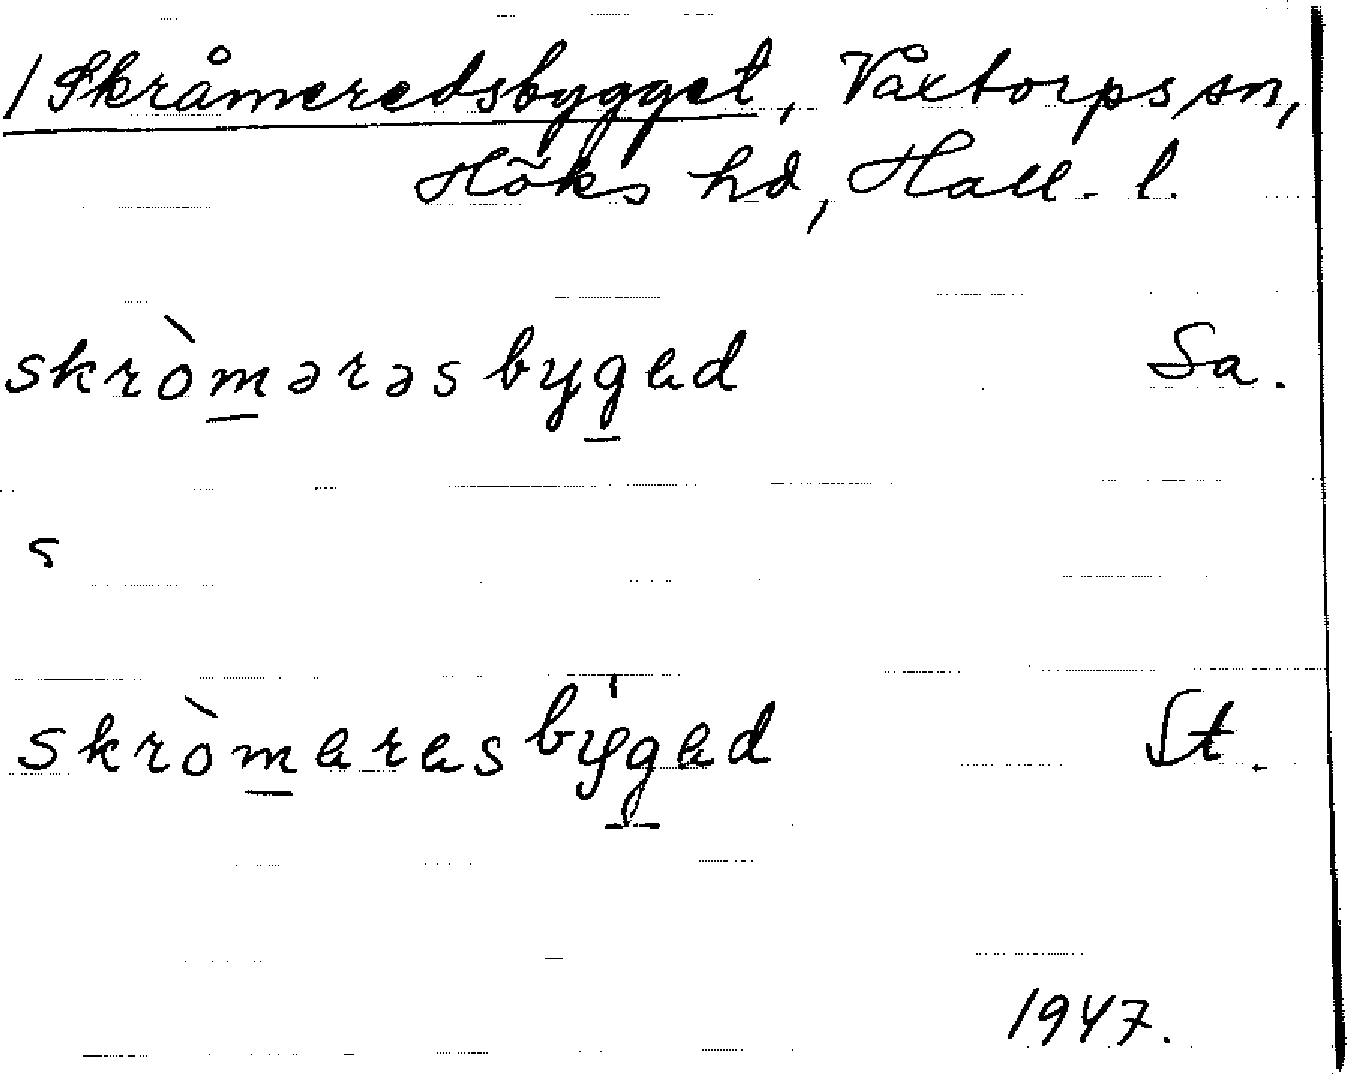 /Skråmeredsbygget, Våxtorps sn,
Höks hd, Hall. l.
skròmərəsbygad Sa.
s
skròmarasbýgad St.
1947.